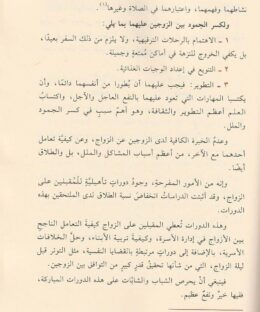 نشاطهما وفهمهما، واعتبارهما في الصلاة وغيرها(١).
ولكسر الجمود بين الزوجين عليهما بما يلي:
١ - الاهتمام بالرحلات الترفيهية، ولا يلزم من ذلك السفر بعيدًا،
بل يكفي الخروج للنزهة في أماكن مُمتعةٍ وجميلة.
٢ - التنويع في إعداد الوجبات الغذائية.
٣ - التطوير: فيجب عليهما أن يُطورا من أنفسهما دائمًا، وأن
يكتسبا المهارات التي تعود عليهما بالنفع العاجل والآجل، واكتسابُ
العلم أعظم التطوير والثقافة، وهو أهمّ سببٍ في كسر الجمود
والملل.
وعدمُ الخبرة الكافية لدى الزوجين عن الزواج، وعن كيفيّة تعامل
أحدهما مع الآخر، من أعظم أسباب المشاكل والملل، بل والطلاق
أيضًا.
وإنه من الأمور المفرحةِ، وجودُ دوراتٍ تأهيليّةٍ للْمُقبلين على
الزواج، وقد أثبتت الدراساتُ انخفاضَ نسبة الطلاق لدى الملتحقين بهذه
الدورات.
وهذه الدورات تُعطي المقبلين على الزواج كيفيةَ التعامل الناجح
بين الأزواج في إدارة الأسرة، وكيفيةِ تربية الأبناء، وحلّ الخلافات
الأسرية، بالإضافة إلى دوراتٍ مرتبطةٍ بالقضايا النفسية، مثل التوتر قبل
ليلة زواج، التي من شأنها تحقيقُ قدرٍ كبيرٍ من التوافق بين الزوجين.
فينبغي أنْ يحرص الشباب والشابّات على هذه الدورات المباركة،
ففيها خيرٌ ونفعٌ عظيم.